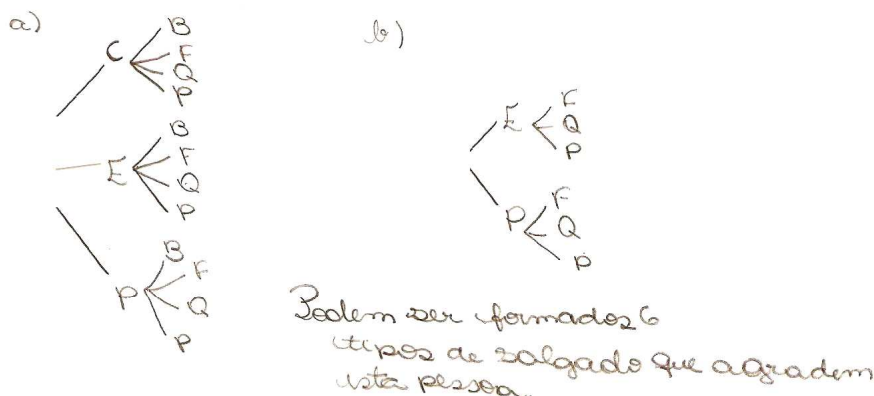 a)
C
B
F
Q
P
E
B
F
Q
P
P
B
F
Q
P
b)
E
F
Q
P
P
F
Q
P
Podem ser formados 6
tipos de salgado que agradem
esta pessoa.